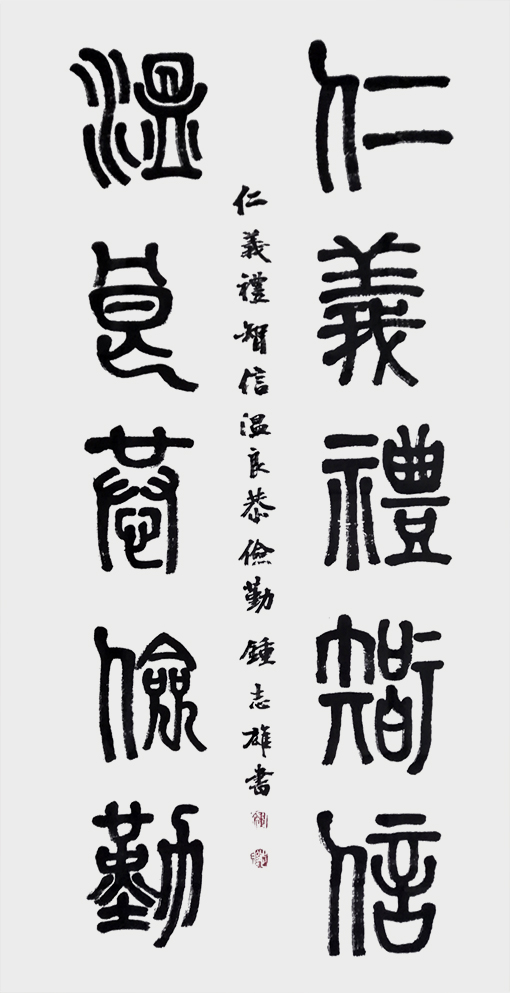 仁義禮智信
溫良恭儉勤
仁義禮智信温良恭儉勤鍾志雄书